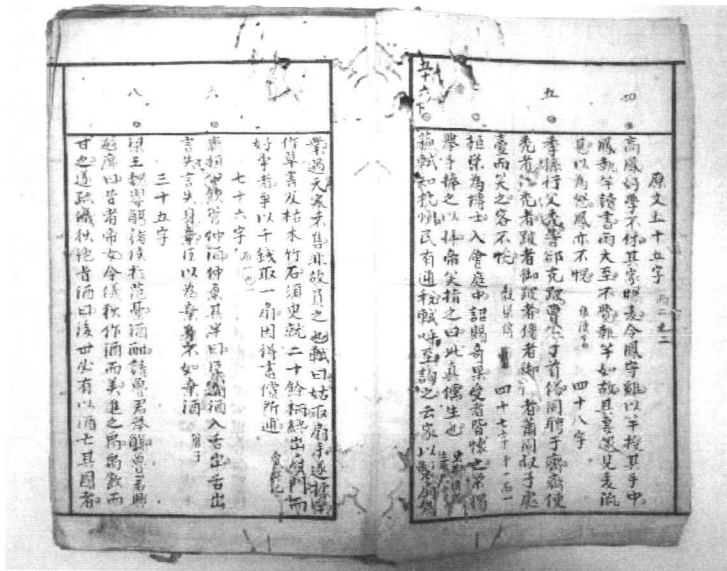 原文五十五字
四 高鳳好學不休其家曬麦令鳳守雞以竿授其手中
鳳執竿讀書雨大至不覺執竿如故其妻還見麦流
四十八字
五 季孫行父禿晉郤克跛曹公子首僂同聘于齊齊使
禿者御禿者跛者御跛者僂者御僂者蕭同叔子處
臺而笑之客不悅 穀梁傳 四十七字
桓榮為博士入會庭中詔賜奇果受者皆懷之榮獨
舉手捧之以拜帝笑指之曰此真儒生也
蘇軾知杭州民有逋税軾呼至詢之云家以製扇
業過天寒未售非故負之也軾曰姑取扇子遂據
作草書及枯木竹石須臾就二十餘柄纔出府門而
好事者爭以千錢取一扇因得書償所逋
七十六字
六 齊桓公飲管仲酒仲棄其半曰臣聞酒入舌出舌出
言失言失身棄臣以為棄身不如棄酒 管子
三十五字
八 梁王魏嬰觴諸侯於范臺酒酣請魯君舉觴魯君興
避席曰昔者帝女令儀狄作酒而美進之禹禹飲而
甘之遂疏儀狄絕旨酒曰後世必有以酒亡其國者